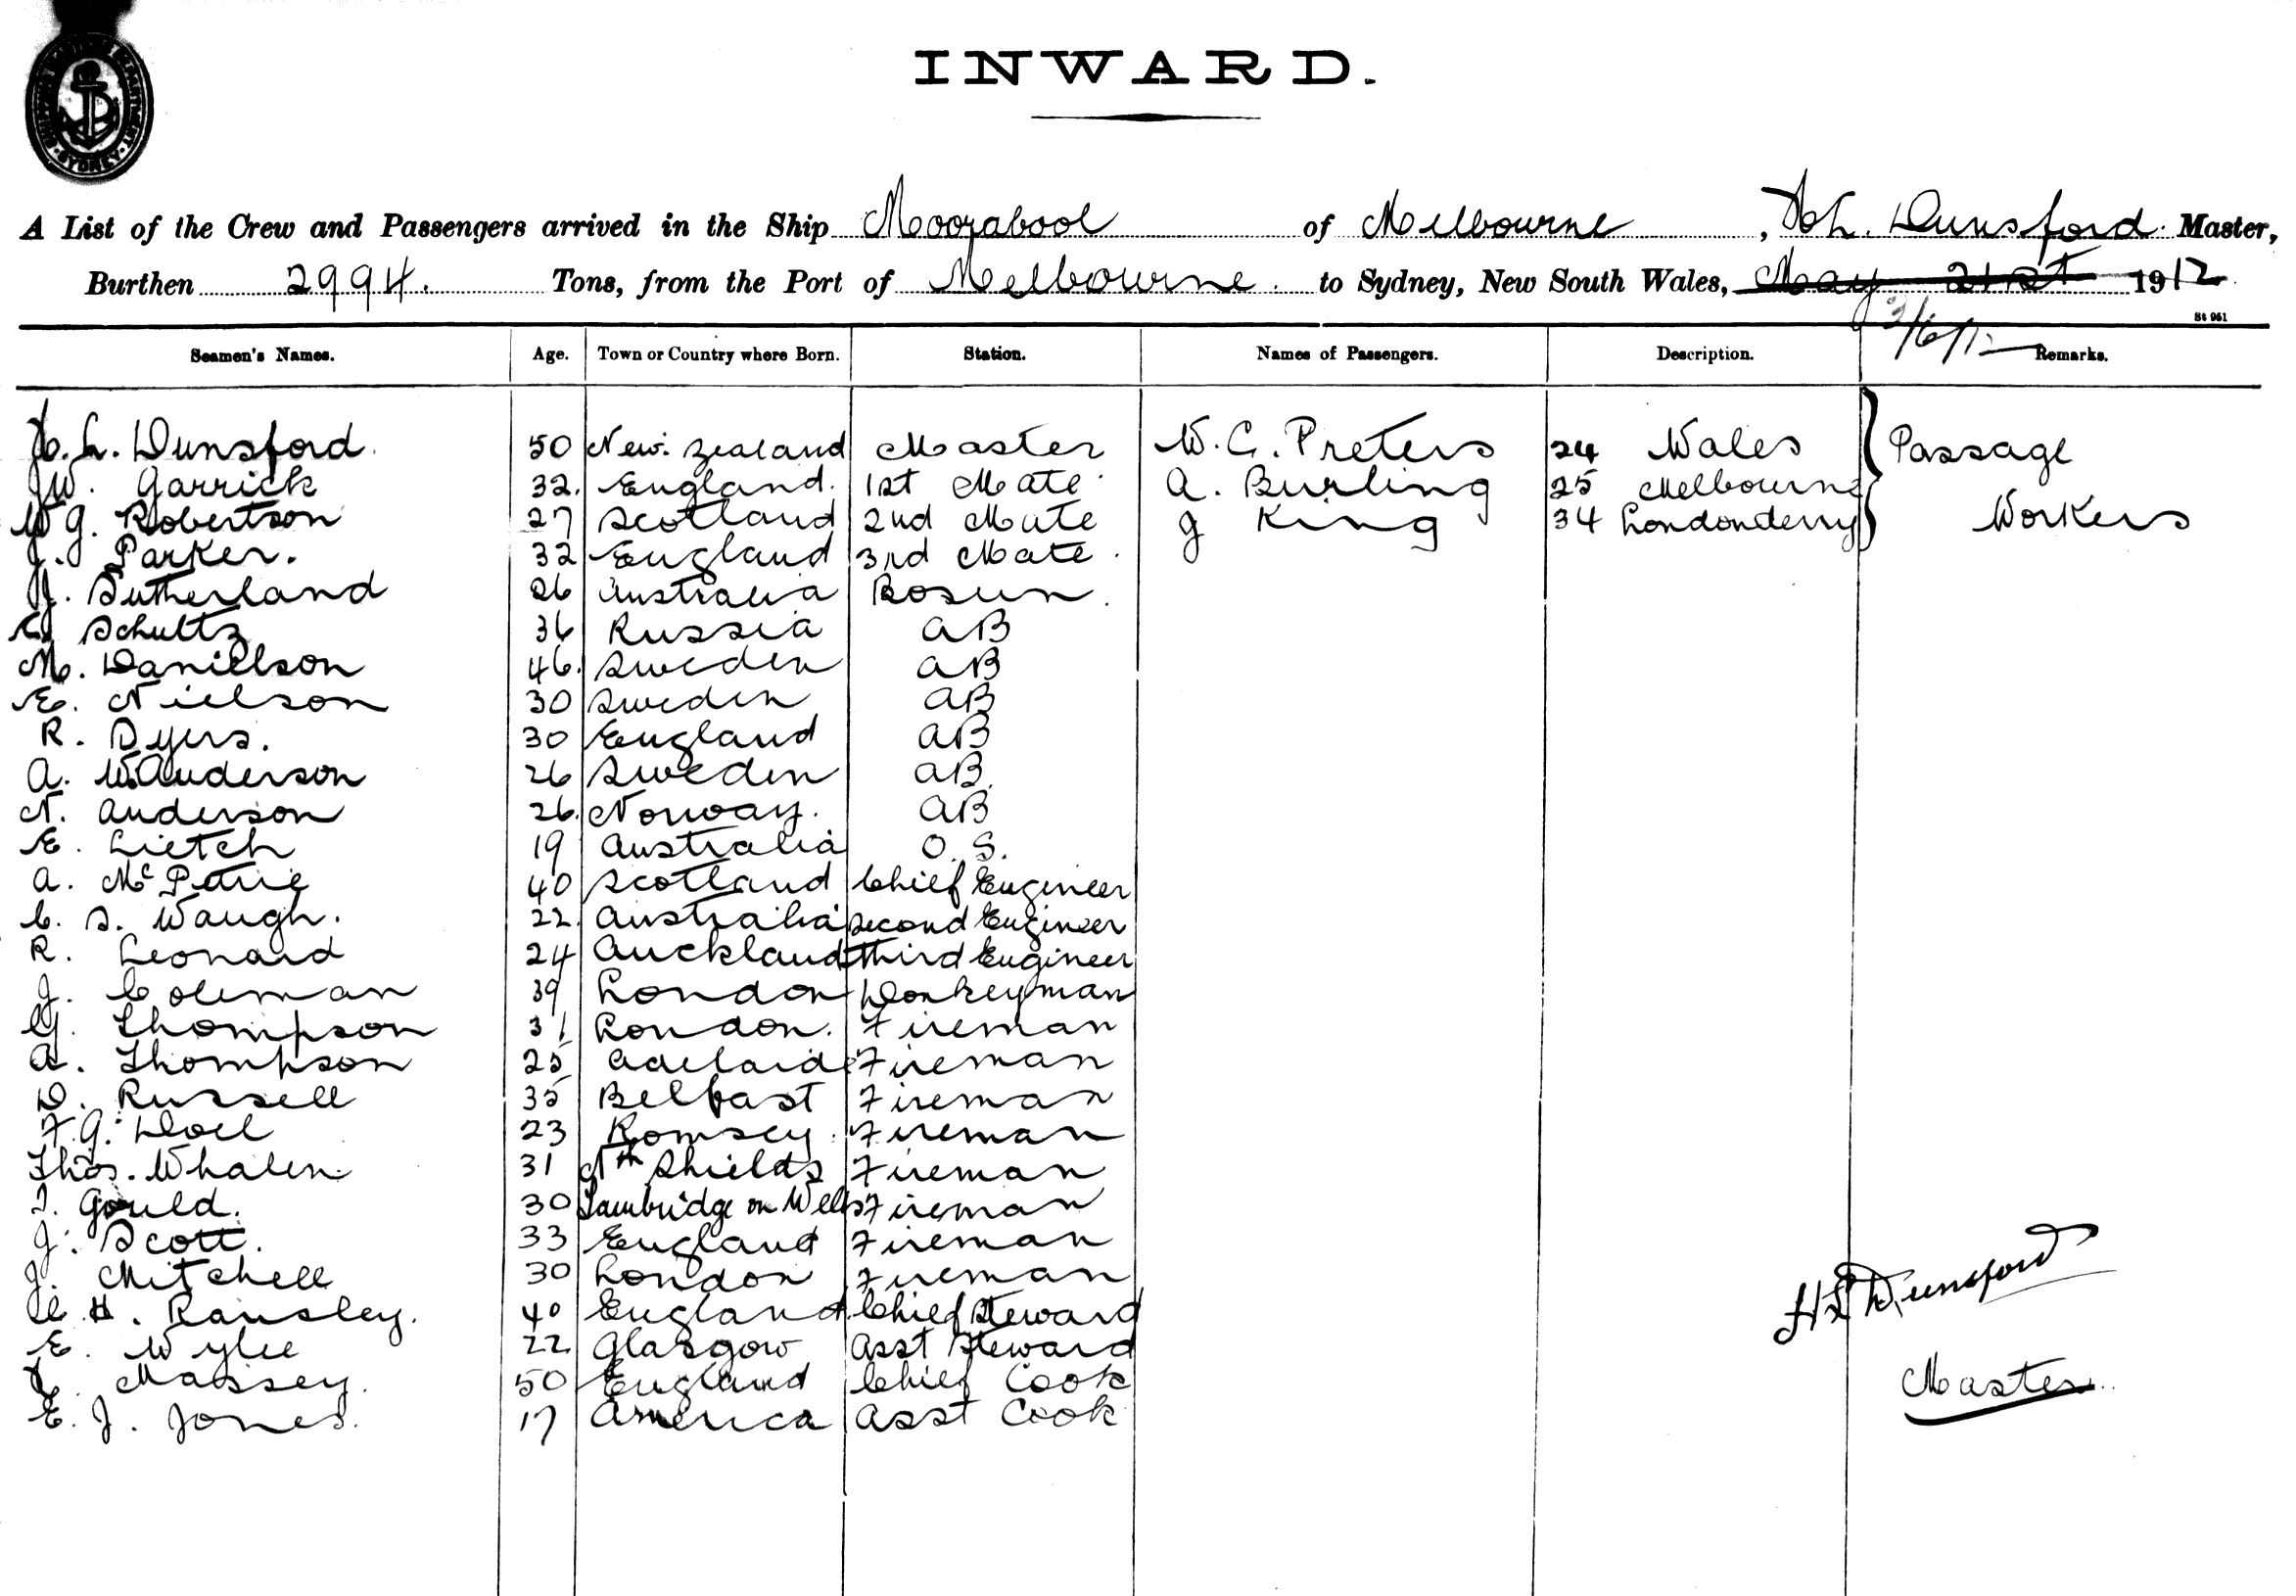 INWARD.
A List of the Crew and Passengers arrived in the Ship Moorabool of Melbourne, H L. Dunsford. Master,
Burthen 2994. Tons, from the Port of Melbourne. to Sydney, New South Wales, May 21st 1912
3/6/12
St 961
Seamen's Names. Age. Town or Country where Born. Station. Names of Passengers. Description. Remarks.
H. L. Dunsford. 50 New Zealand Master W. C. Preters 24 Wales Passage
J W. Garrick 32. England. 1st Mate A. Burling 25 Melbourne
W G. Robertson 27 Scotland 2nd Mate J King 34 Londonderry Workers
J. Parker. 32 England 3rd Mate.
J. Sutherland 26 Australia Bosun.
Schultz 36 Russia AB
M. Daniellson 46. Sweden AB
E. Nielson 30 Sweden AB
R. Dyers. 30 England AB
A. W. Anderson 26 Sweden AB
N. Anderson 26. Norway. AB
E. Lietch 19 Australia O. S.
A. McPetrie 40 Scotland Chief Engineer
C. S. Waugh. 22. Australia Second Engineer
R. Leonard 24 Auckland Third Engineer
J. Coleman 39 London Donkeyman
G. Thompson 31 London. Fireman
A. Thompson 25 Adelaide Fireman
D. Russell 35 Belfast Fireman
F. G. Doel 23 Romsey. Fireman
Thos. Whalen 31 Nth Shields Fireman
T. Gould. 30 Tambridge on Wells Fireman
J. Scott. 33 England Fireman
J. Mitchell 30 London Fireman
C H. Ransley. 40 England. Chief Steward
E. Wylie 22 Glasgow Asst Steward
Massey. 50 England Chief Cook
E. J. Jones. 17 America Asst Cook
H L Dunsford
Master.